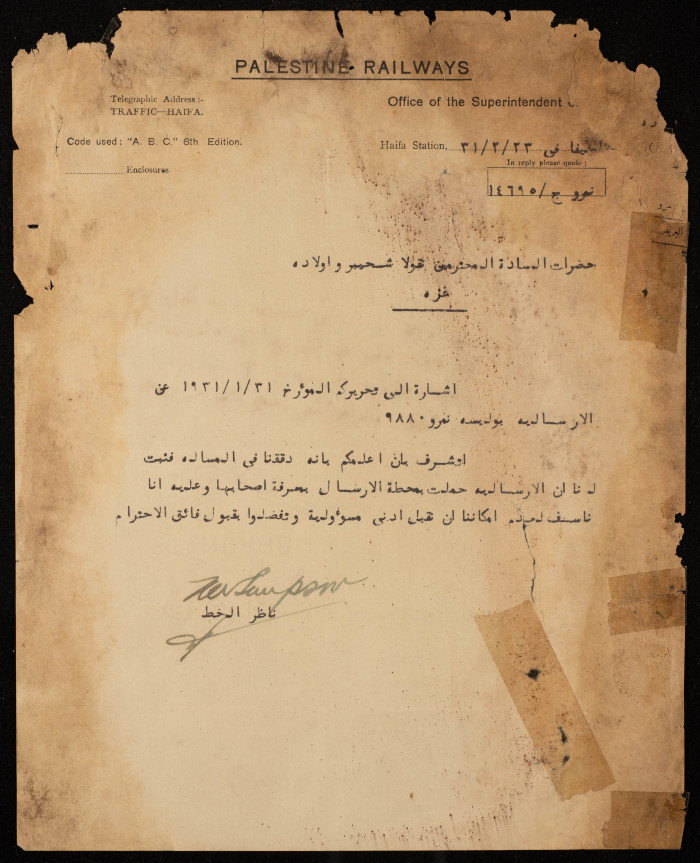 PALESTINE RAILWAYS
Telegraphic Address :-
TRAFFIC—HAIFA.
Office of the Superintendent
Code used: "A. B. C." 6th Edition.
Haifa Station, في ٣١/٢/٢٣
In reply please quote:
Enclosures
نمرو ج/١٤٦٩٥
حضرات السادة المحترمين نقولا شحيبر واولاده
غزه
اشارة الى تحريركم المؤرخ ١٩٣١/١/٣١ عن
الارساليه بوليسه نمرو ٩٨٨٠
اتشرف بان اعلمكم بانه دققنا في المساله فثبت
لنا ان الارساليه حملت بمحطة الارسال بمعرفة اصحابها وعليه انا
ناسف لعدم امكاننا ان نقبل ادنى مسؤولية وتفضلوا بقبول فائق الاحترام
ناظر الخط